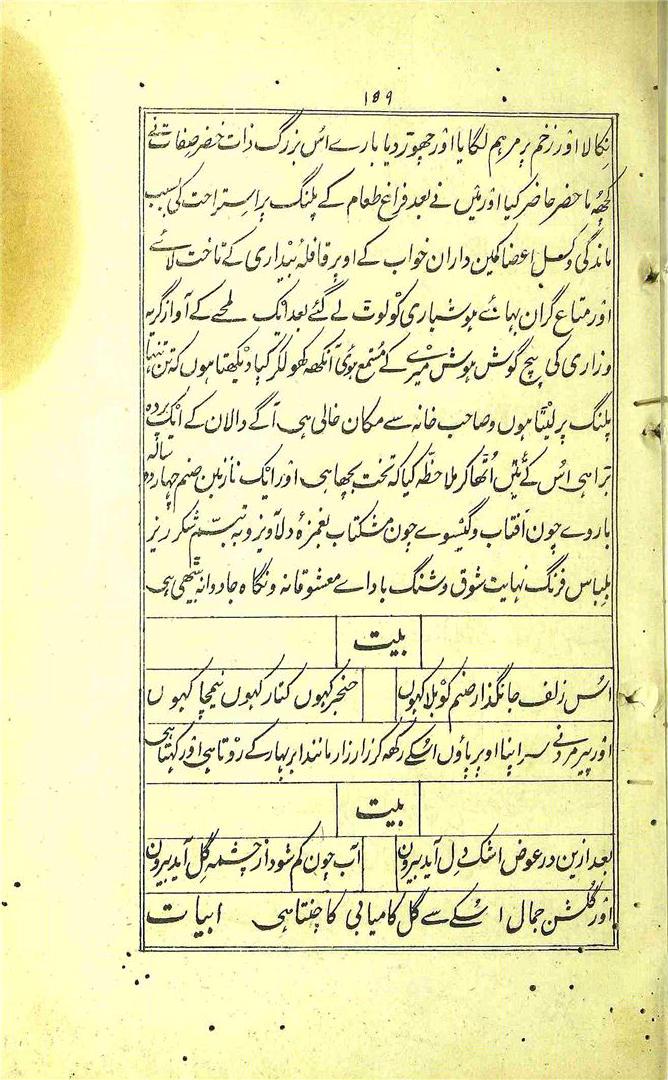 ۱۵۹
نکالا اور زخم پر مرہم لگایا اور چھوڑ دیا بارے اُس بزرگ ذات خضر صفات نے
کچھ ما حضر حاضر کیا اور میں نے بعد فراغ طعام کے پلنگ پر استراحت کی بسبب
ماندگی و کسل اعضا کمین داران خواب کے اوپر قافلۂ بیداری کے تاخت لائے
اور متاع گران بہائے ہوشیاری کو لوٹ لے گئے بعد ایک لمحے کے آواز گریہ
وزاری کی بیچ گوش ہوش میرے کے مستمع ہوئی آنکھہ کھولکر کیا دیکھتا ہوں کہ تن تنہا
پلنگ پر لیٹا ہوں و صاحب خانہ سے مکان خالی ہی آگے دالان کے ایک پردہ
پڑا ہی اُس کے تئیں اُٹھا کر ملاحظہ کیا کہ تخت بچھا ہی اور ایک نازنین صنم چہاردہ سالہ
باروے چون آفتاب و گیسوے چون مشکناب بغمزۂ دلاویز و بہ تبسّم شکر ریز
بلباس فرنگ نہایت شوق و شنگ باداے معشوقانہ و نگاہ جادوانہ بیٹھی ہی
بیت
اُس زلف جانگداز صنم کو بلا کہوں
خنجر کہوں کٹار کہوں نیمچا کہوں
اور پیر مرد نے سر اپنا اوپر پاؤں اُسکے رکھہ کر زار زار مانند ابر بہار کے روتا ہی اور کہتا ہی
بیت
بعد ازین در عوض اشک دل آید بیرون
آب چون کم شود از چشمہ گل آید بیرون
اور گلشن جمال اُسکے سے گل کامیابی کا چنتا ہی ابیات